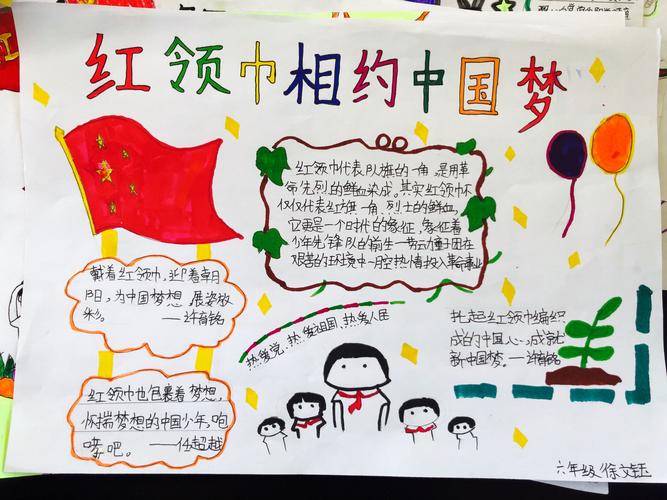 红领巾相约中国梦
红领巾代表队旗的一角,是用革
命先烈的鲜血染成。其实红领巾不
仅仅代表红旗一角、烈士的鲜血,
它更是一个时代的象征,象征着
少年先锋队的前生—劳动童子团在
艰苦的环境中一腔热情投入革命事业
戴着红领巾,迎着朝
阳,为中国梦想展姿放
彩。——许馥铭
热爱党,热爱祖国,热爱人民
扎起红领巾编织
成的中国心,成就
新中国梦。——许馥铭
红领巾也包裹着梦想,
怀揣梦想的中国少年,咆
哮吧。——任超越
六年级徐文钰